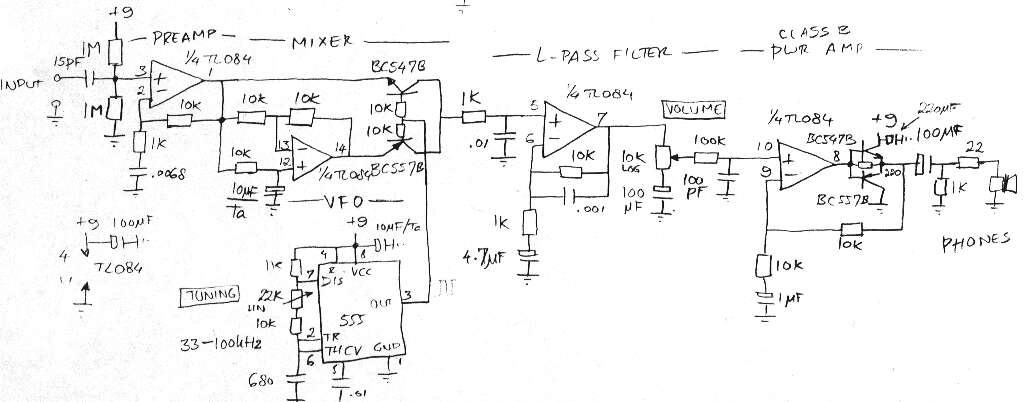 +9
PREAMP
MIXER
CLASS B
PWR AMP
L-PASS FILTER
1M
15pF
INPUT
3
2
1
1/4 TL084
1M
10K
10K
10K
1K
.0068
10K
13
12
14
1/4 TL084
10µF
Ta
BC547B
10K
10K
BC557B
1K
.01
5
6
7
1/4 TL084
10K
.001
1K
4.7µF
VOLUME
10K
LOG
100
µF
100K
100
PF
10
9
8
1/4 TL084
BC547B
BC557B
+9
220µF
100µF
220
22
1K
PHONES
10K
10K
1µF
+9
100µF
4
11
TL084
VFO
+9
10µF/Ta
1K
TUNING
22K
LIN
10K
33-100kHz
680
4
8
R
VCC
7
DIS
OUT
3
555
2
TR
6
TH
CV
GND
5
1
.01